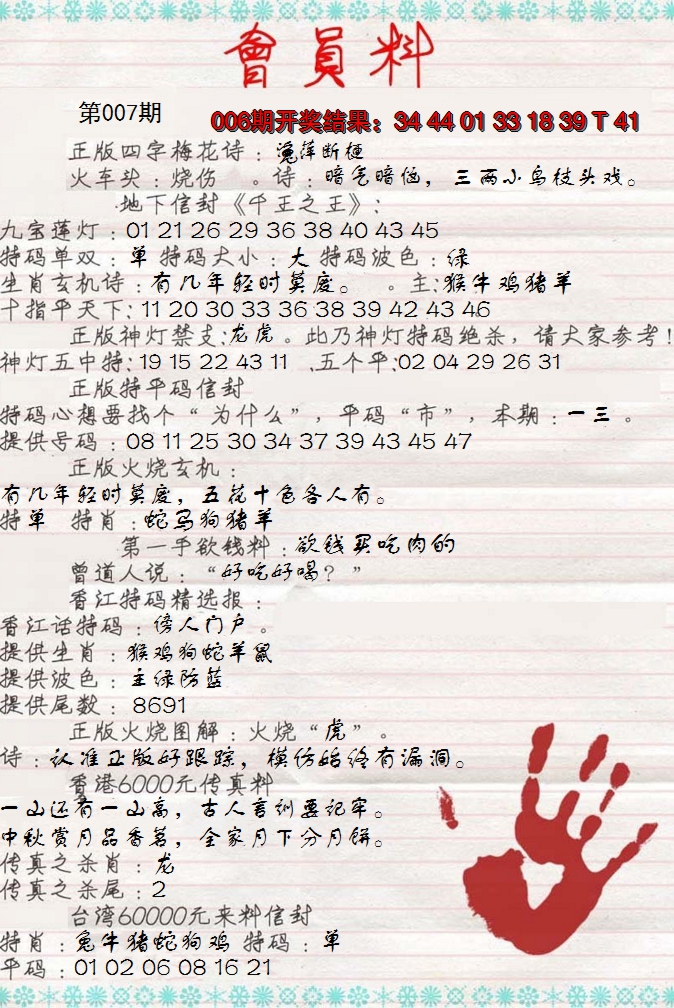 會員料
第007期
006期开奖结果：34 44 01 33 18 39 T 41
正版四字梅花诗：萍断梗
火车头：烧伤 。诗：暗气暗恼，三两小鸟枝头戏。
地下信封《千王之王》：
九宝莲灯：01 21 26 29 36 38 40 43 45
特码单双：单 特码大小：大 特码波色：绿
生肖玄机诗：有几年轻时莫度。 。主：猴牛鸡猪羊
十指平天下：11 20 30 33 36 38 39 42 43 46
正版神灯禁支：龙虎。此乃神灯特码绝杀，请大家参考！
神灯五中特：19 15 22 43 11 .五个平：02 04 29 26 31
正版特平码信封
特码心想要找个“为什么”，平码“市”，本期：一三。
提供号码：08 11 25 30 34 37 39 43 45 47
正版火烧玄机：
有几年轻时莫度，五花十色各人有。
特单 特肖：蛇马狗猪羊
第一手欲钱料：欲钱买吃肉的
曾道人说：“好吃好喝？”
香江特码精选报：
香江话特码：傍人门户。
提供生肖：猴鸡狗蛇羊鼠
提供波色：主绿防蓝
提供尾数：8691
正版火烧图解：火烧“虎”。
诗：认准正版好跟踪，模仿始终有漏洞。
香港6000元传真料
一山还有一山高，古人言训要记牢。
中秋赏月品香茗，全家月下分月饼。
传真之杀肖：龙
传真之杀尾：2
台湾60000元来料信封
特肖：兔牛猪蛇狗鸡 特码：单
平码：01 02 06 08 16 21